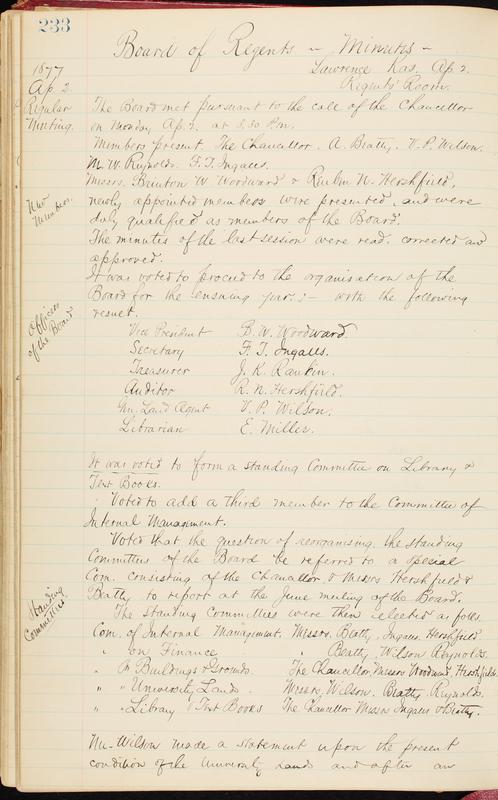 233
Board of Regents ~ Minutes ~
Lawrence Kas. Ap. 2.
Regents' Room.
1877
Ap. 2.
Regular
Meeting.
The Board met pursuant to the call of the Chancellor
on Monday Ap. 2. at 3.30 P.m.
Members present, The Chancellor. A. Beatty. V. P. Wilson.
M. W. Reynolds. F. T. Ingalls.
New
Members.
Messrs. Brinton W Woodward & Reuben N. Hershfield,
newly appointed members were presented, and were
duly qualified as members of the Board.
The minutes of the last session were read, corrected and
approved.
It was voted to proceed to the organisation of the
Board for the ensuing year:- with the following
result.
Officers
of the Board
Vice President B. W. Woodward.
Secretary F. T. Ingalls.
Treasurer J. K. Rankin.
Auditor R. N. Hershfield.
Gen. Land Agent V. P. Wilson.
Librarian E. Miller.
It was voted to form a standing Committee on Library &
Text Books.
Voted to add a third member to the Committee of
Internal Management.
Voted that the question of reorganising the standing
Committees of the Board be referred to a special
Com. consisting of the Chancellor & Messrs Hershfield &
Beatty to report at the June meeting of the Board.
Standing
Committees
The standing Committees were then selected as follows
Com. of Internal Management. Messrs. Beatty, Ingalls, Hershfield
" on Finance " Beatty, Wilson Reynolds.
" " Buildings & Grounds. The Chancellor, Messrs Woodward, Hershfield.
" " University Lands. Messrs, Wilson. Beatty. Reynolds.
" " Library & Text Books The Chancellor Messrs Ingalls & Beatty.
Mr. Wilson made a statement upon the present
condition of the University Lands and after an